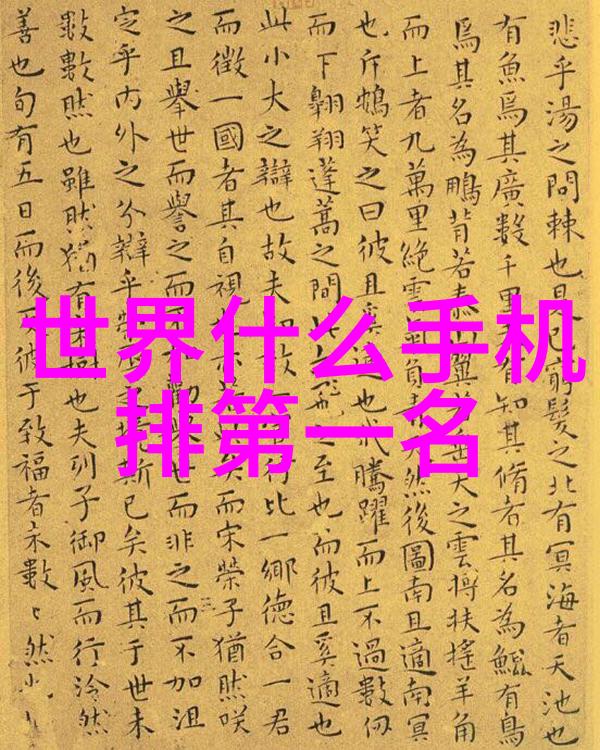 世界什么手机
排第一名
悲乎湯之問棘也是已窮髮之北有冥海者天池也
有魚焉其廣數千里未有知其脩者其名為鯤有鳥
焉其名為鵬背若泰山翼若垂天之雲摶扶搖羊角
而上者九萬里絕雲氣負青天然後圖南且適南冥
也斥鴳笑之曰彼且奚適也我騰躍而上不過數仞
而下翱翔蓬蒿之間此亦飛之至也而彼且奚適也
此小大之辯也故夫知效一官行比一鄉德合一君
而徵一國者其自視也亦若此矣而宋榮子猶然咲
之且舉世而譽之而不加勸舉世而非之而不加沮
定乎內外之分辯乎榮辱之境斯已矣彼其于世未
數數然也雖然猶有未樹也夫列子御風而行泠然
善也旬有五日而後反彼于致福者未數〻然也